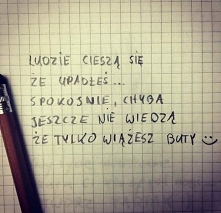 LUDZIE CIESZĄ SIĘ
ŻE UPADŁEŚ...
SPOKOJNIE, CHYBA
JESZCZE NIE WIEDZĄ
ŻE TYLKO WIĄŻESZ BUTY ☺